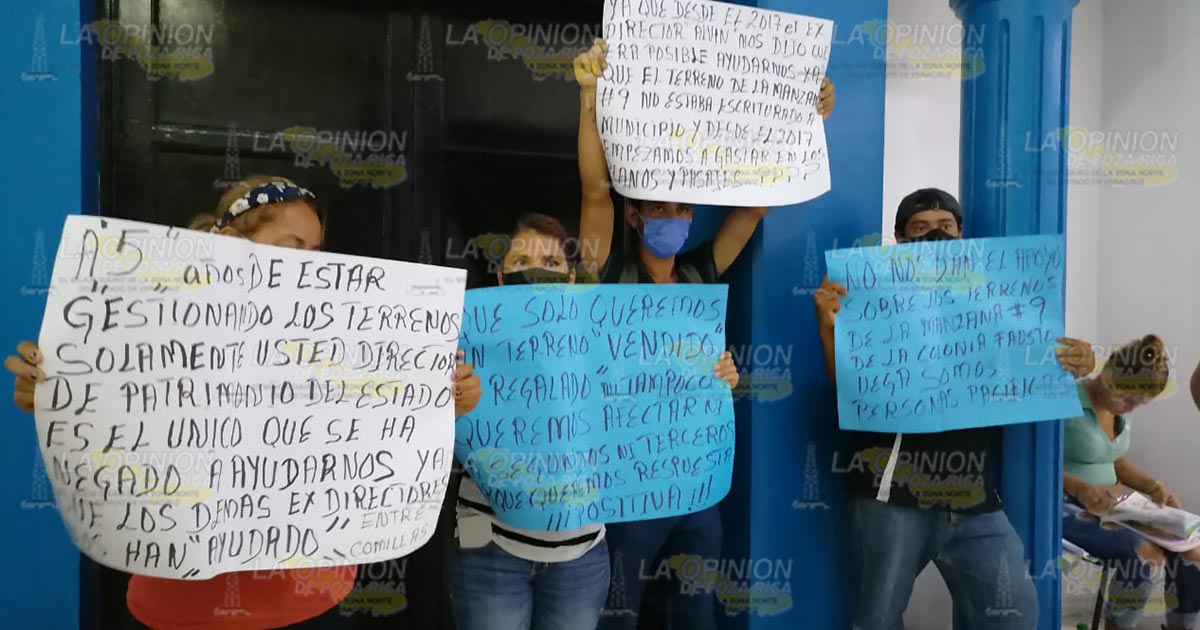 A "5" años DE ESTAR
GESTIONANDO LOS TERRENOS
SOLAMENTE USTED DIRECTOR
DE PATRIMONIO DEL ESTADO
ES EL UNICO QUE SE HA
NEGADO A AYUDARNOS YA
QUE LOS DEMAS EX DIRECTORES
HAN "AYUDADO" ENTRE
COMILLAS
QUE SOLO QUEREMOS
UN TERRENO "VENDIDO"
REGALADO TAMPOCO
QUEREMOS AFECTAR NI
A SEGUNDOS NI TERCEROS
QUEREMOS RESPUESTA
POSITIVA!!!
YA QUE DESDE EL 2017 el EX
DIRECTOR "ALVIN" NOS DIJO QUE
ERA POSIBLE AYUDARNOS YA
QUE EL TERRENO DE LA MANZANA
#9 NO ESTABA ESCRITURADO A
MUNICIPIO Y DESDE EL 2017
EMPEZAMOS A GASTAR EN LOS
PLANOS Y PASAJES ????
NO NOS DAN EL APOYO
SOBRE LOS TERRENOS
DE LA MANZANA #9
DE LA COLONIA FAUSTO
VEGA SOMOS
PERSONAS PACIFICAS
LA OPINION
DE POZA RICA
LA ZONA NORTE